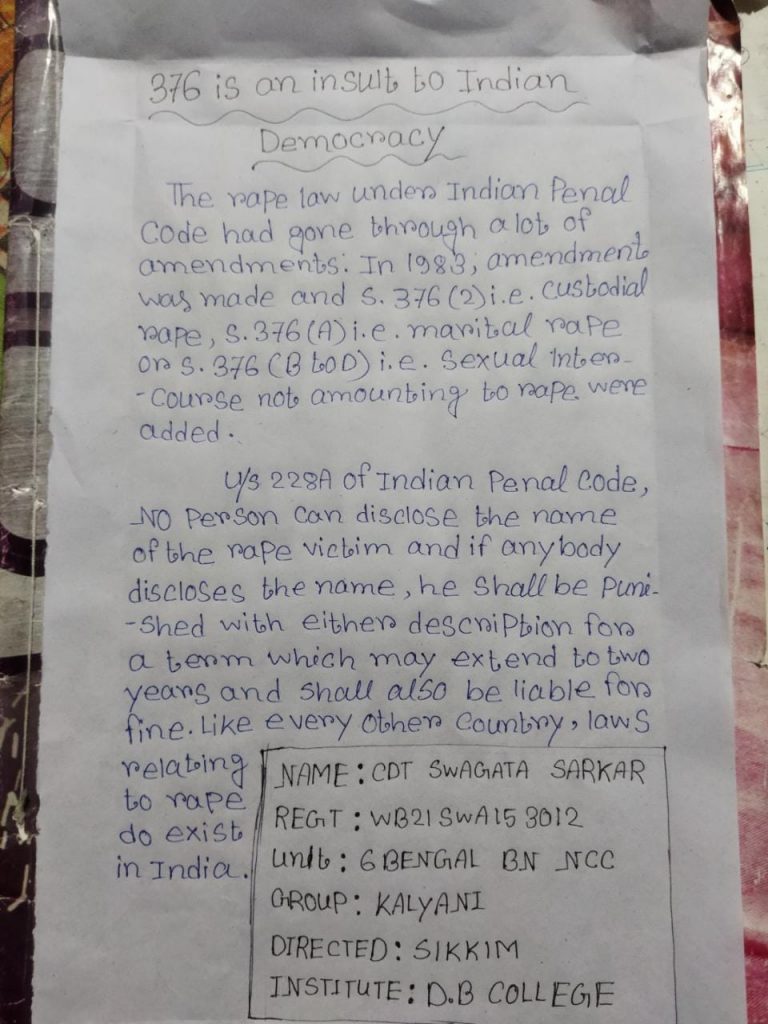 376 is an insult to Indian
Democracy
The rape law under Indian Penal
Code had gone through a lot of
amendments. In 1983, amendment
was made and S. 376 (2) i.e. custodial
rape, S. 376 (A) i.e. marital rape
or S. 376 (B to D) i.e. Sexual Inter-
-Course not amounting to rape were
added.
U/S 228A of Indian Penal Code,
NO Person Can disclose the name
of the rape victim and if anybody
discloses the name, he shall be puni-
-shed with either description for
a term which may extend to two
years and shall also be liable for
fine. Like every other Country, laws
relating
to rape
do exist
in India.
NAME: CDT SWAGATA SARKAR
REGT : WB21SWA153012
Unit : 6 BENGAL BN NCC
GROUP: KALYANI
DIRECTED: SIKKIM
INSTITUTE: D.B COLLEGE